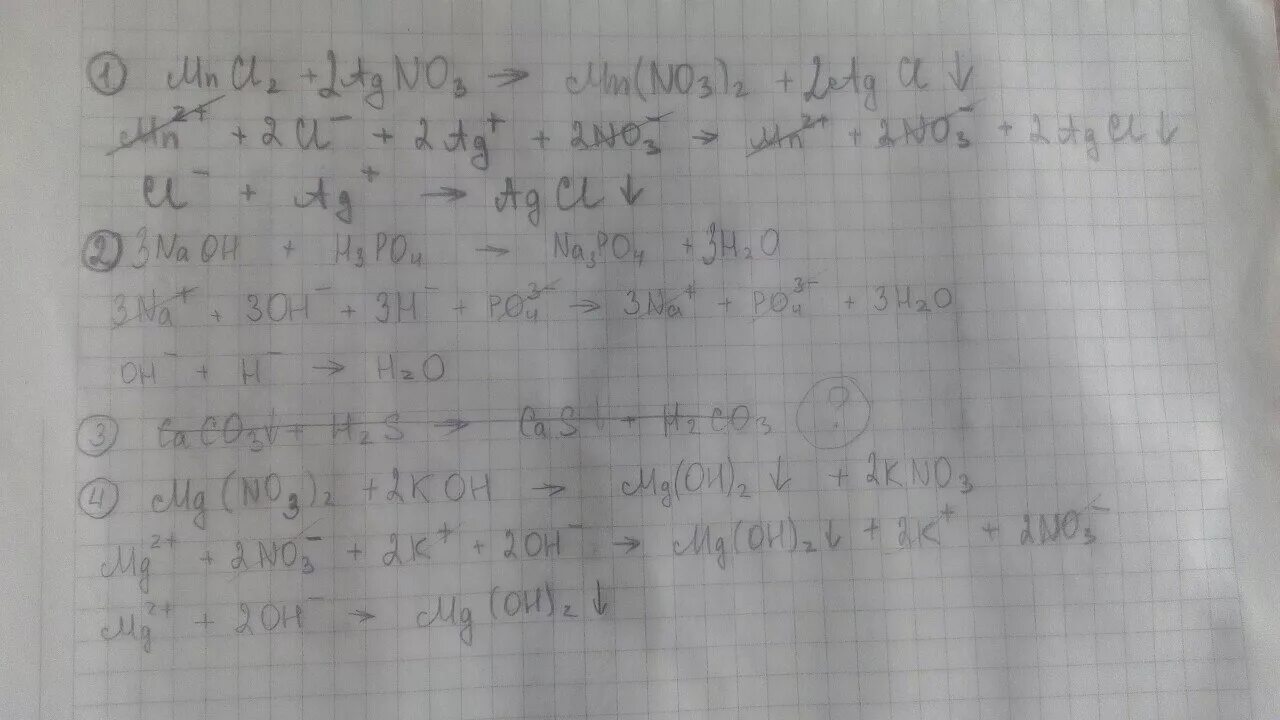 ① MnCl₂ + 2AgNO₃ → Mn(NO₃)₂ + 2AgCl↓
Mn²⁺ + 2Cl⁻ + 2Ag⁺ + 2NO₃⁻ → Mn²⁺ + 2NO₃⁻ + 2AgCl↓
Cl⁻ + Ag⁺ → AgCl↓
② 3NaOH + H₃PO₄ → Na₃PO₄ + 3H₂O
3Na⁺ + 3OH⁻ + 3H⁻ + PO₄³⁻ → 3Na⁺ + PO₄³⁻ + 3H₂O
OH⁻ + H⁻ → H₂O
③ CaCO₃↓ + H₂S → CaS↓ + H₂CO₃ ?
④ Mg(NO₃)₂ + 2KOH → Mg(OH)₂↓ + 2KNO₃
Mg²⁺ + 2NO₃⁻ + 2K⁺ + 2OH⁻ → Mg(OH)₂↓ + 2K⁺ + 2NO₃⁻
Mg²⁺ + 2OH⁻ → Mg(OH)₂↓